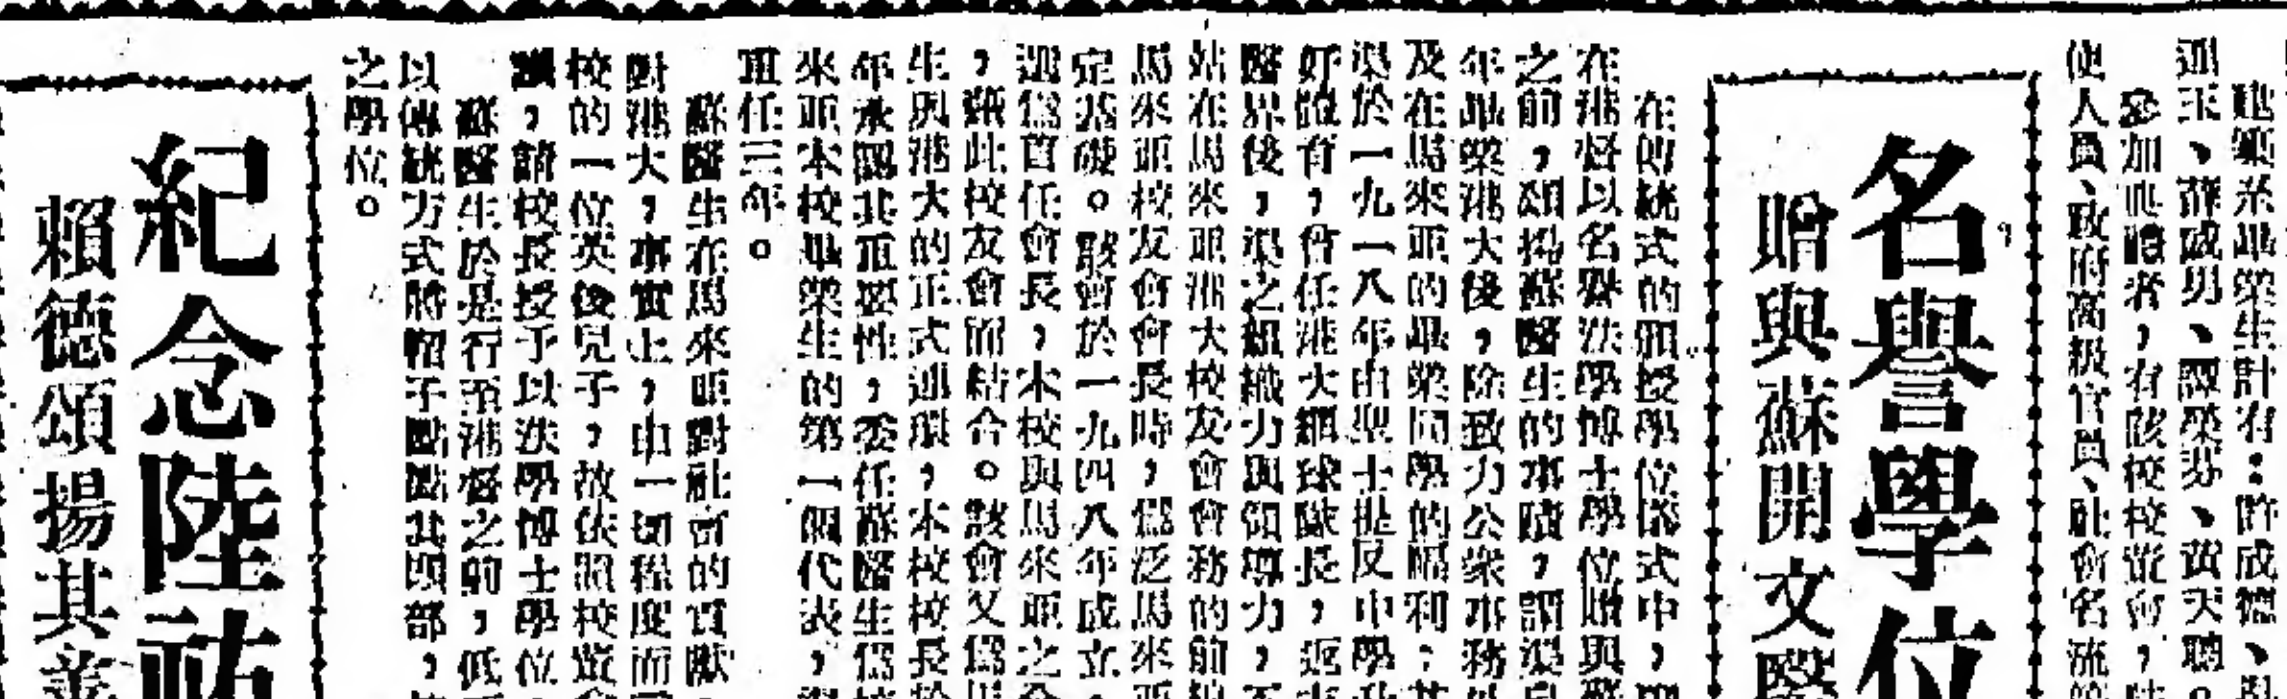 建築系畢業生計有：許成德、
迎玉、薛成男、譚榮芬、黃天聰。
參加典禮者，有該校校董會，
使人員、政府高級官員、社會名流
名譽學位
贈與蘇開文醫
在傳統式的頒授學位儀式中，
在港督以名譽法學博士學位贈與蘇
之前，頌揚蘇醫生的事蹟，謂渠
年畢業港大後，除致力公衆事務
及在馬來亞的畢業同學的福利，其
渠於一九一八年由聖士提反中學
好體育，曾任港大網球隊長，返
醫界後，渠之組織力與領導力，
站在馬來亞港大校友會會務的前
馬來亞校友會會長時，僑泛馬來亞
定基礎。該會於一九四八年成立，
選爲首任會長，本校與馬來亞之
，藉此校友會而結合。該會又爲
生與港大的正式連環，本校校長
年承認其重要性，委任蘇醫生爲
來亞本校畢業生的第一個代表，
重任三年。
蘇醫生在馬來亞對社會的貢獻，
對港大，事實上，由一切程度而
校的一位英俊兒子，故依照校董會
，請校長授予以法學博士學位。
蘇醫生於是行至港督之前，低
以傳統方式將帽子點點其頭部，
之學位。
紀念陸祐
賴德頌揚其善